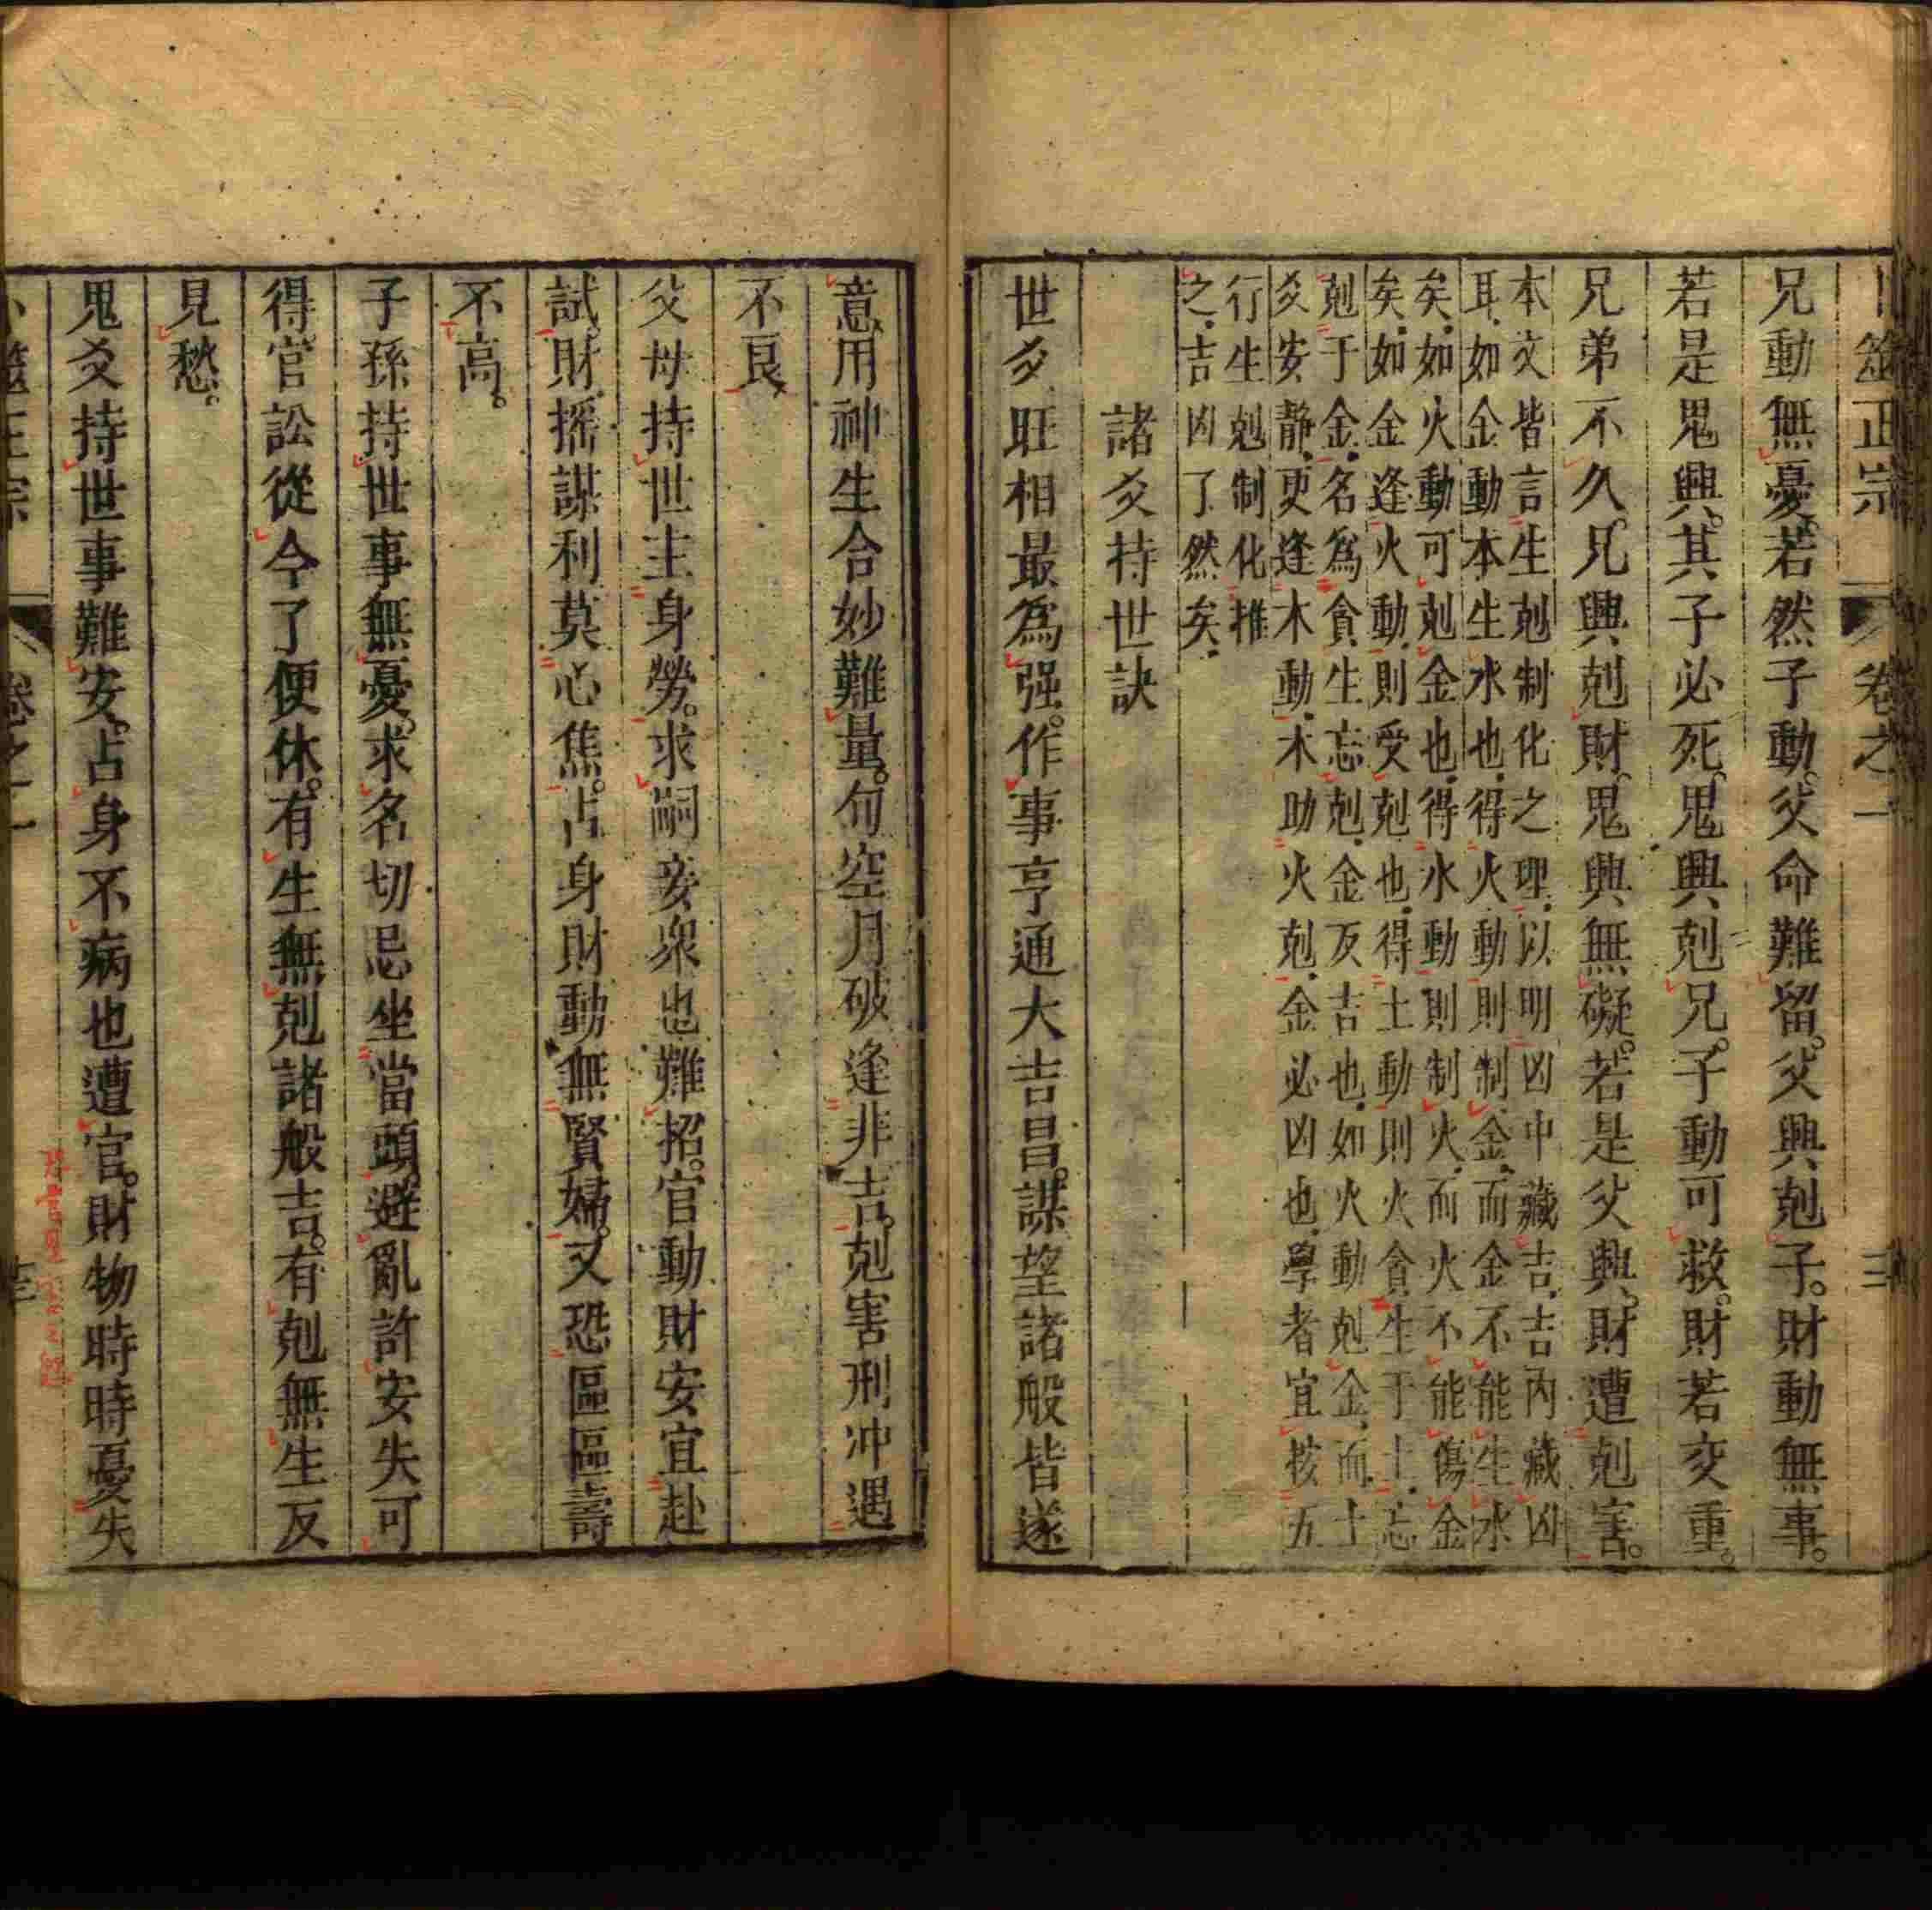 卜筮正宗 卷之一 三
兄動無憂若然子動父命難留父興剋子財動無事
若是鬼興其子必死鬼興剋兄子動可救財若交重
兄弟不久兄興剋財鬼興無礙若是父興財遭剋害
本文皆言生剋制化之理以明凶中藏吉吉內藏凶
耳如金動本生水也得火動則制金而金不能生水
矣如火動可剋金也得水動則制火而火不能傷金
矣如金逢火動則受剋也得土動則火貪生于土忘
剋于金名為貪生忘剋金反吉也如火動剋金而土
爻安靜更逢木動木助火剋金必凶也學者宜按五
行生剋制化推
之吉凶了然矣
諸爻持世訣
世爻旺相最為强作事亨通大吉昌謀望諸般皆遂
意用神生合妙難量旬空月破逢非吉剋害刑冲遇
不良
父母持世主身勞求嗣妾衆也難招官動財安宜赴
試財摇謀利莫心焦占身財動無賢婦又恐區區壽
不高
子孫持世事無憂求名切忌坐當頭避亂許安失可
得官訟從今了便休有生無剋諸般吉有剋無生反
見愁
鬼爻持世事難安占身不病也遭官財物時時憂失